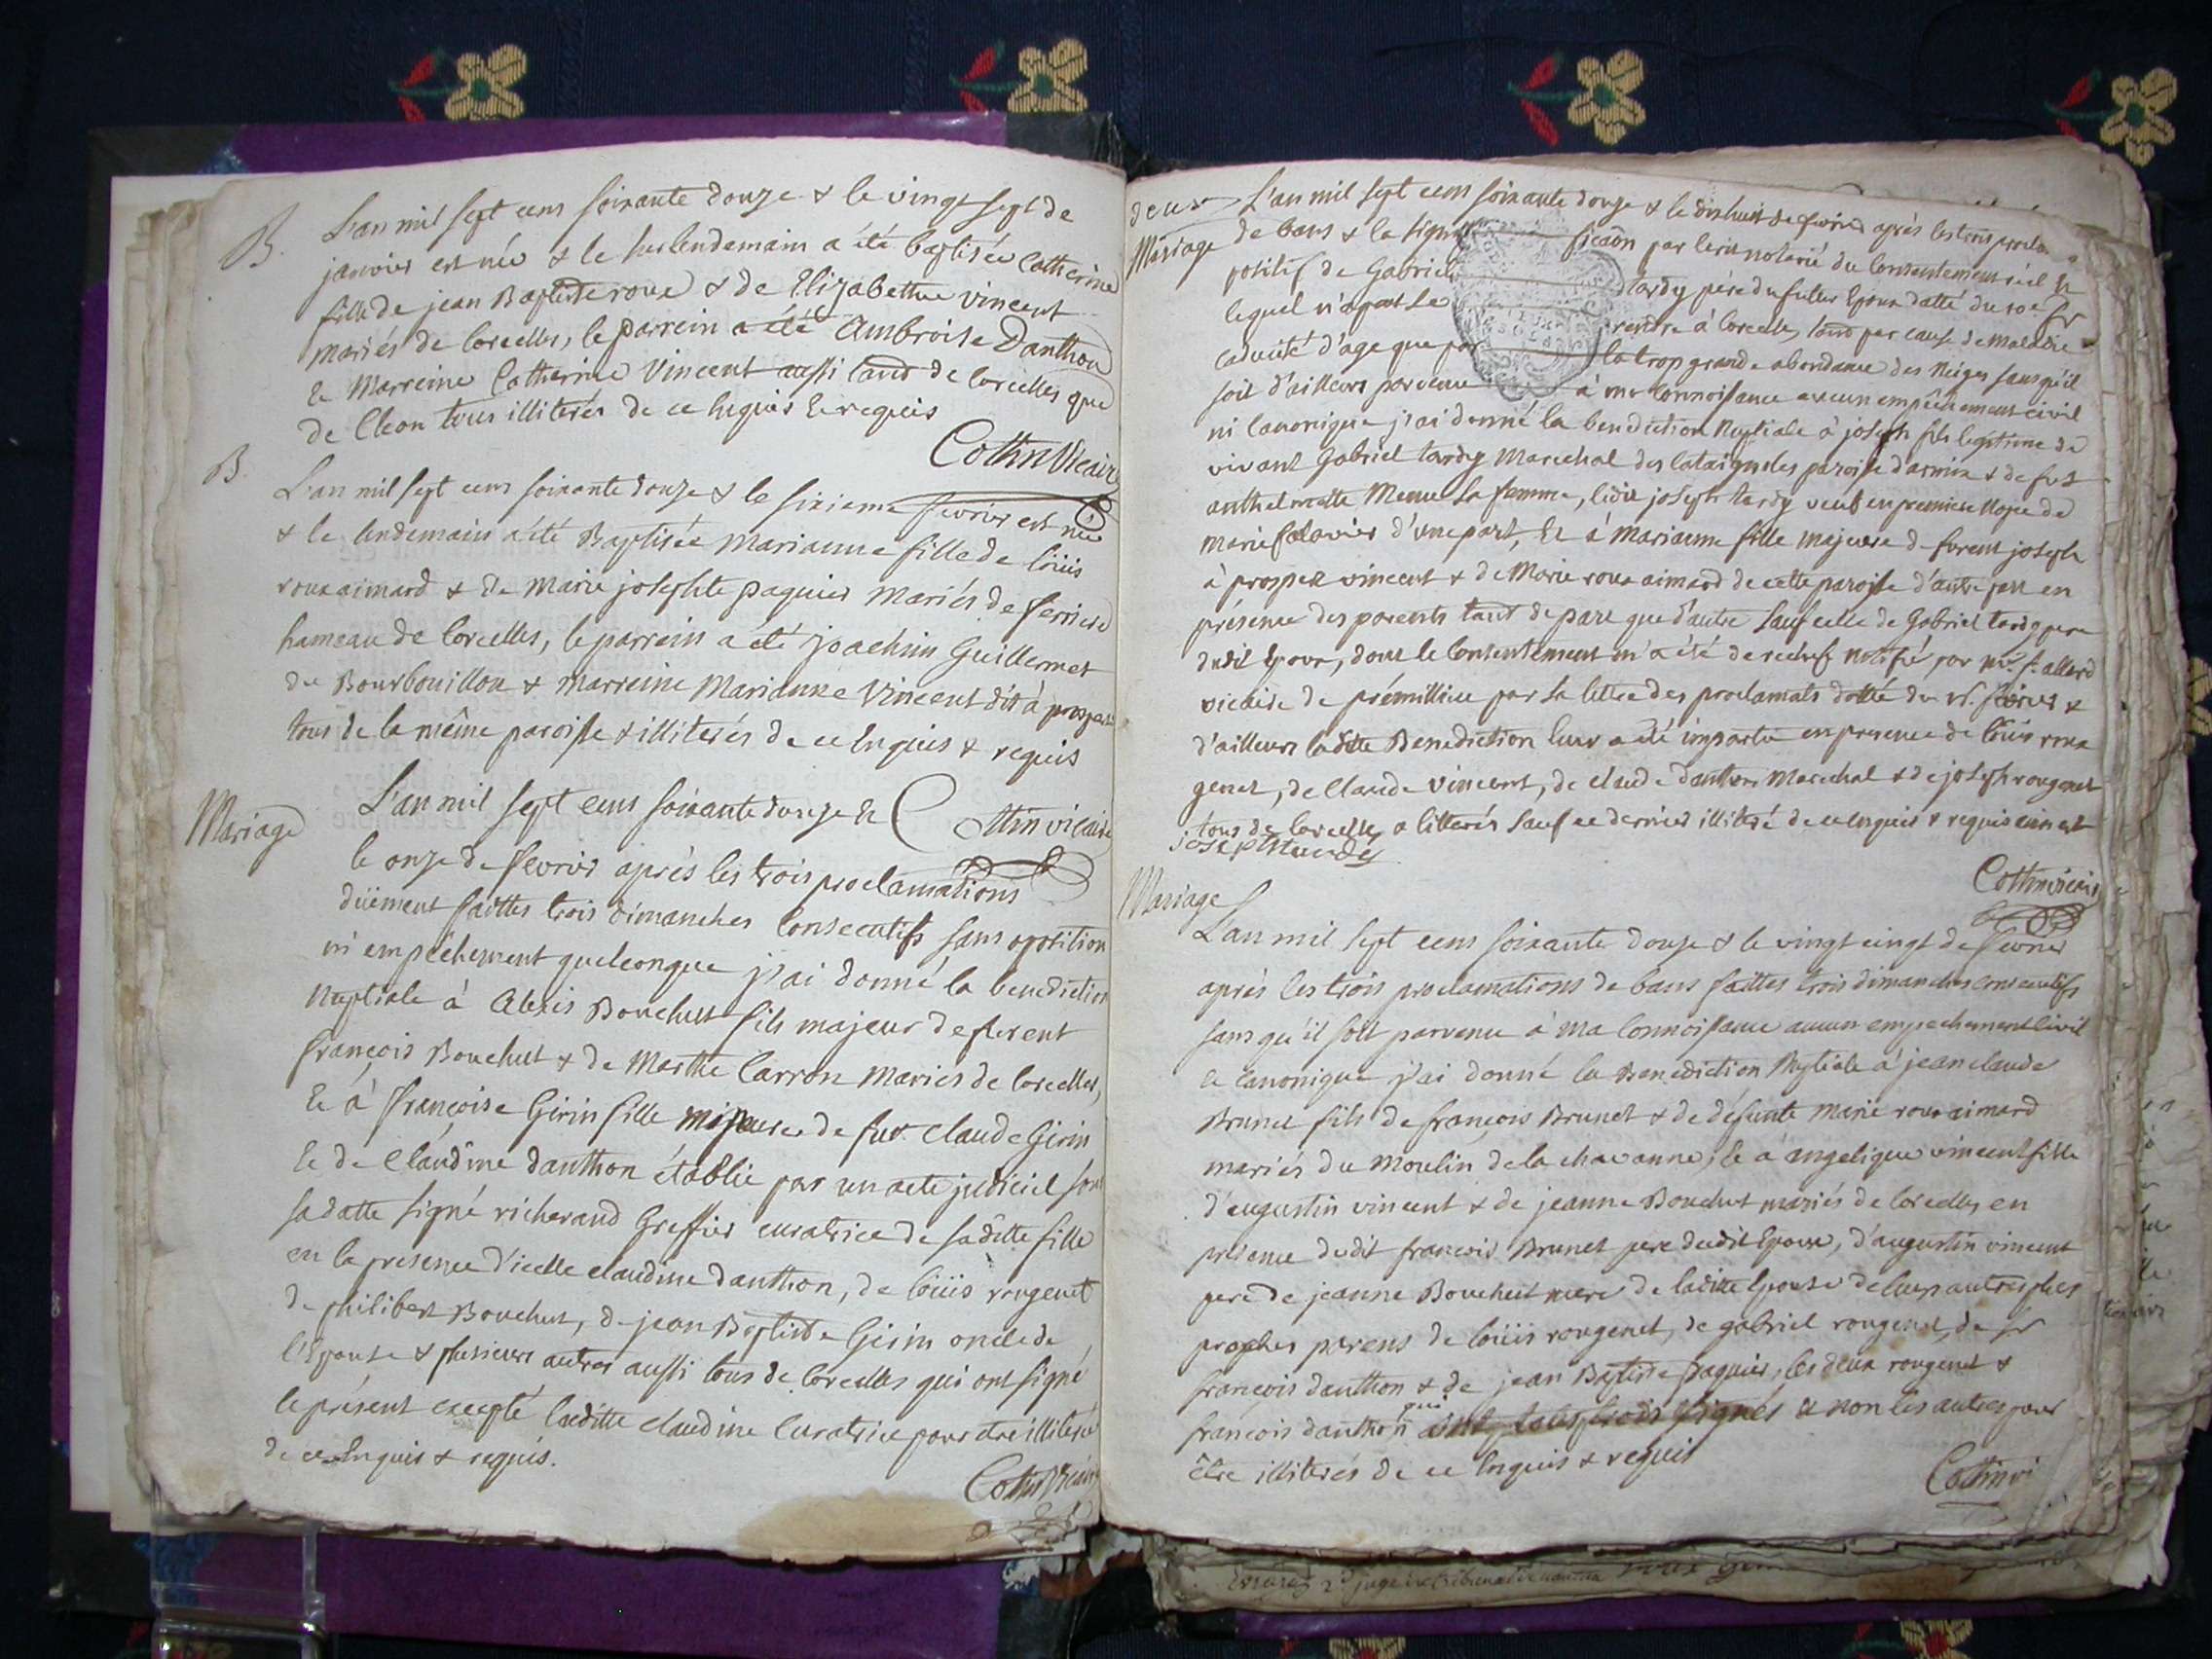 B. L'an mil sept cens soixante douze & le vingt sept de
janvier est née & le surlendemain a été baptisée Catherine
fille de jean Baptiste roux & de Elizabethe vincent
mariés de Corcelles, le parrein a été Ambroise Danthon
& Marreine Catherine Vincent aussi tant de Corcelles que
de Cleon tous illiterés de ce enquis & requis
Cottin Vicaire
B. L'an mil sept cens soixante douze & le sixieme fevrier est née
& le lendemain a été Baptisée Marianne fille de loüis
roux aimard & de Marie josephte paquier mariés de ferriere
hameau de Corcelles, le parrein a été joachim Guillermet
du Bourbouillon & marreine Marianne Vincent dit à prosper
tous de la même paroisse & illiterés de ce enquis & requis
Cottin vicaire
Mariage L'an mil sept cens soixante douze &
le onze de fevrier après les trois proclamations
düement faittes trois dimanches consecutifs sans opposition
ni empêchement quelconque j'ai donné la benediction
Nuptiale à Alexis Bouchut fils majeur de furent
françois Bouchut & de Marthe Carron mariés de Corcelles,
& à françoise Girin fille majeure de fut claude Girin
& de Claudine danthon établie par un acte judiciel sous
sa datte signé richerand Greffier curatrice de sa ditte fille
en la presence d'icelle claudine danthon, de loüis rougemet
de philibert Bouchut, de jean Baptiste Girin oncle de
l'Epouse & plusieurs autres aussi tous de Corcelles qui ont signé
le présent excepté laditte claudine Curatrice pour etre illiterée
de ce enquis & requis.
Cottin Vicaire
deux L'an mil sept cens soixante douze & le dixhuit de fevrier après les trois procla
Mariage de bans & la signi fication par lecrit notarié du Consentement réel &
positif de Gabriel tardy père du futur Epoux datté du 10e
lequel n'a pas se rendre à Corcelles, tant par cause de maladie
caducité d'age que par la trop grande abondance des Neiges sans qu'il
soit d'ailleurs parvenu à ma connoissance aucun empêchement civil
ni canonique j'ai donné la benediction Nuptiale à joseph fils legitime de
vivant Gabriel tardy Marechal des paroisse d'armix & de fut
anthelmette sa femme, ledit joseph tardy veuf en premiere Nopce de
marie d'une part, & à Marianne fille majeure de furent joseph
à prosper vincent & de Marie roux aimard de cette paroisse d'autre part en
présence des parents tant de part que d'autre sauf celle de Gabriel tardy pere
dudit Epoux, dont le Consentement m'a été derechef notifié par mr. allard
vicaire de prémillieu par sa lettre des proclamats datté du fevrier &
d'ailleurs laditte Benediction leur a été impartie en presence de loüis
de Claude Vincent, de claude danthon Marechal & de joseph rougemet
tous de Corcelles a litterés sauf ce dernier illiteré de ce enquis & requis
joseph tardy
Cottin vicaire
Mariage
L'an mil sept cens soixante douze & le vingt cinq de fevrier
après les trois proclamations de bans faittes trois dimanches consecutifs
sans qu'il soit parvenu à ma Connoissance aucun empechement Civil
& Canonique j'ai donné la Benediction Nuptiale à jean claude
Brunet fils de françois Brunet & de défunte Marie roux aimard
mariés du moulin de la chavanne, & à angelique vincent fille
d'augustin vincent & de jeanne Bouchut mariés de Corcelles en
présence dudit françois Brunet pere dudit Epoux, d'augustin vincent
pere de jeanne Bouchut mere de laditte Epouse de leurs autres plus
proches parens de loüis rougemet, de gabriel rougemet, de
françois danthon & de jean Baptiste paquier, les deux rougemet &
françois danthon signés & non les autres pour
être illiterés de ce enquis & requis
Cottin vi